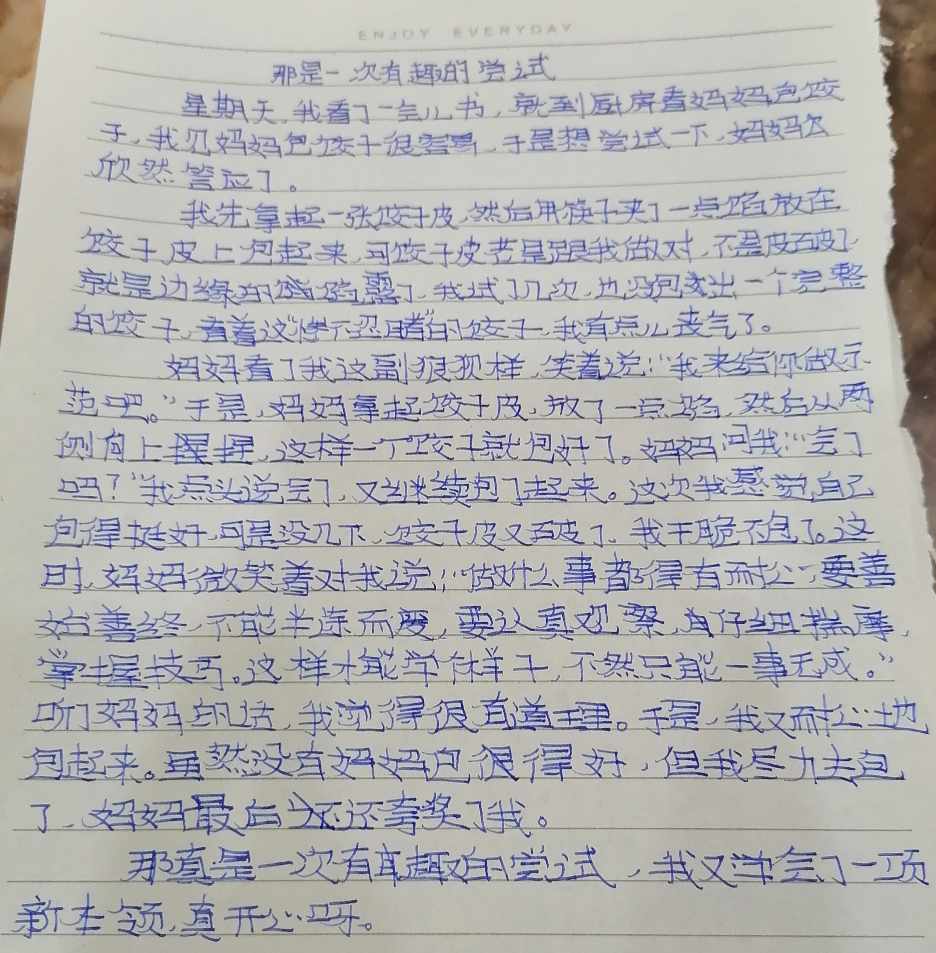 ENJOY EVERYDAY
那是一次有趣的尝试
星期天,我看了一会儿书,就到厨房看妈妈包饺
子,我见妈妈包饺子很容易,于是想尝试一下,妈妈欠
欣然答应了。
我先拿起一张饺子皮,然后用筷子夹了一点馅放在
饺子皮上包起来,可饺子皮老是跟我做对,不是皮破了
就是边缘的馅露了,我试了几次,也没包出一个完整
的饺子,看着这“惨不忍睹”的饺子,我有点儿丧气了。
妈妈看了我这副狼狈样,笑着说:“我来给你做示
范吧。”于是,妈妈拿起饺子皮,放了一点馅,然后从两
侧向上握握,这样一个饺子就包好了。妈妈问我:“会了
吗?”我点头说会了,又继续包了起来。这次我感觉自己
包得挺好,可是没几下,饺子皮又破了,我干脆不包了。这
时,妈妈微笑着对我说:“做什么事都得有耐心,要善
始善终,不能半途而废,要认真观察,自仔细揣摩,
掌握技巧。这样才能学什样子,不然只能一事无成。”
听了妈妈的话,我觉得很有道理。于是,我又耐心地
包起来。虽然没有妈妈包很得好,但我尽力去包
了,妈妈最后还还夸奖了我。
那真是一次有趣的尝试,我又学会了一项
新本领,真开心呀。